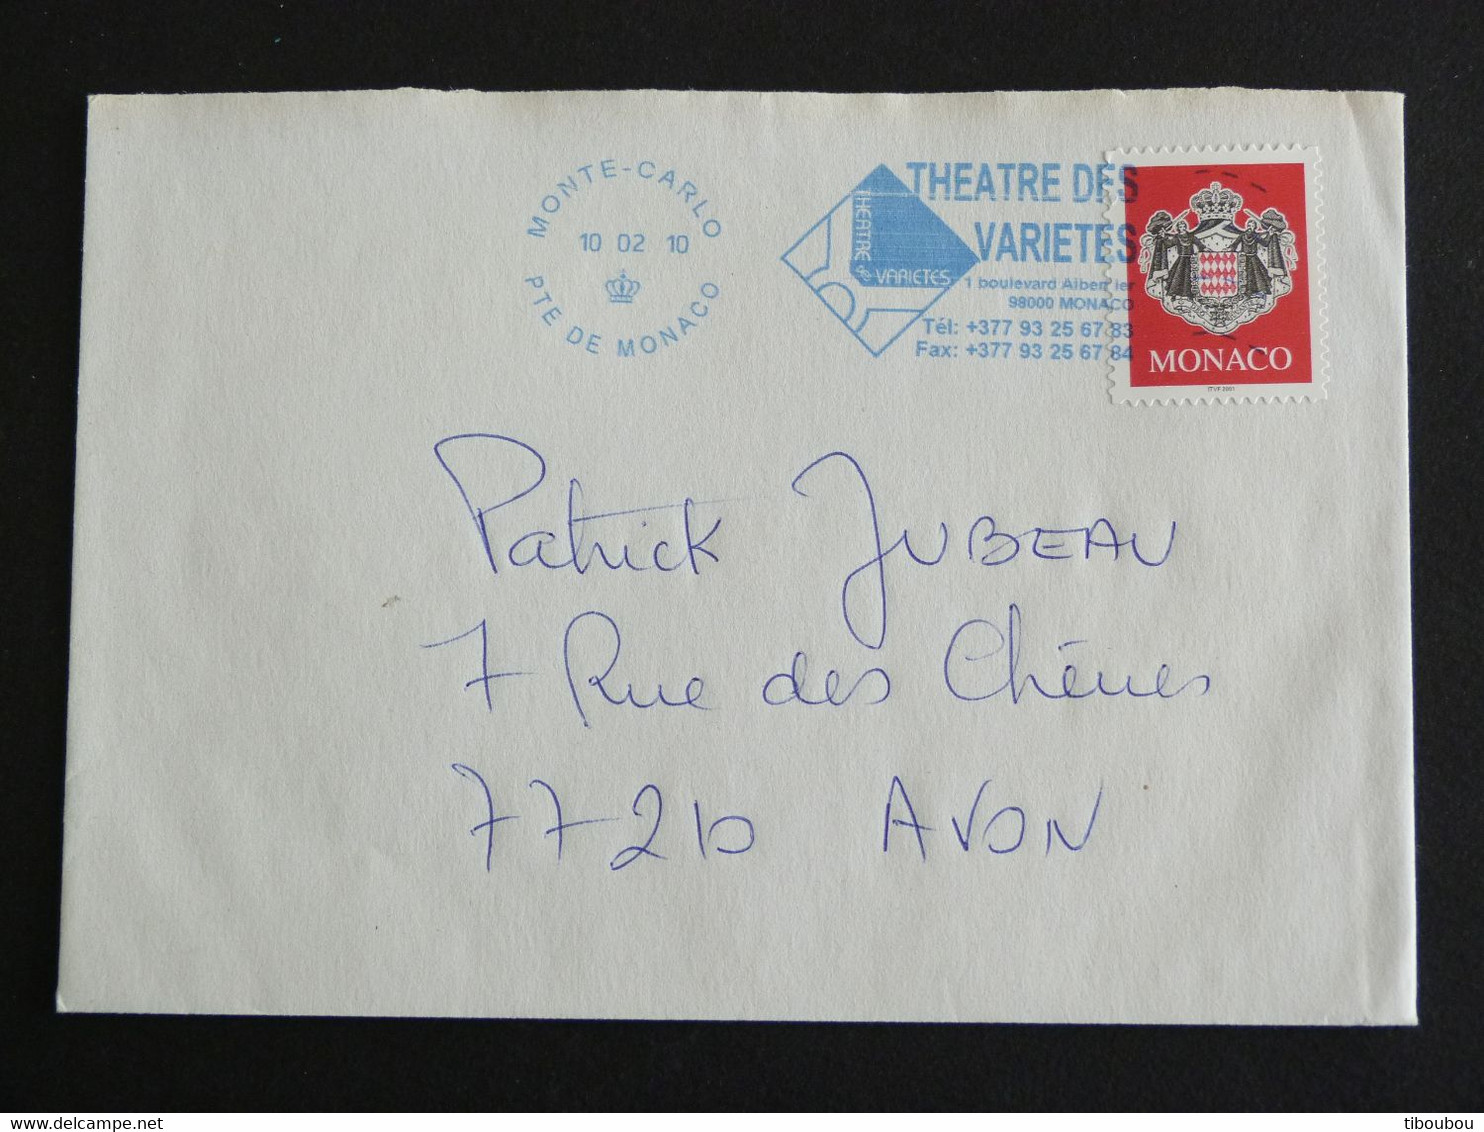 MONTE-CARLO
10 02 10
PTE DE MONACO
THEATRE DES
VARIETES
THEATRE
des
VARIETES
1 boulevard Albert Ier
98000 MONACO
Tél: +377 93 25 67 83
Fax: +377 93 25 67 84
MONACO
ITVF 2001
Patrick JUBEAU
7 Rue des Chênes
77210 AVON
tiboubou